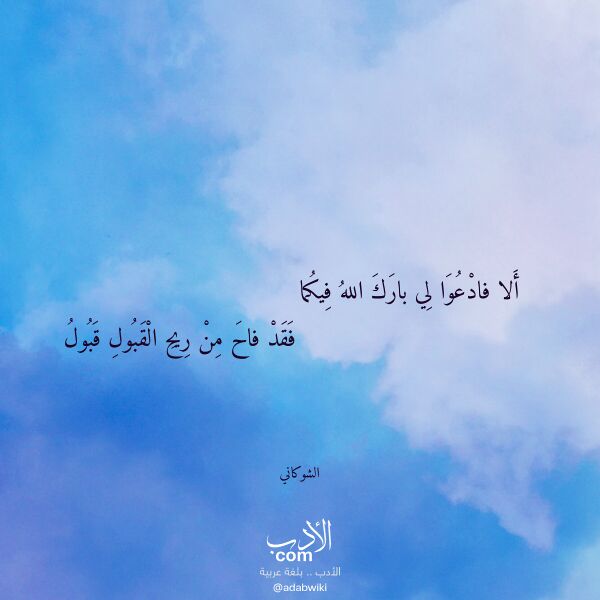 أَلا فادْعُوَا لِي بارَكَ اللهُ فِيكُما
فَقَدْ فاحَ مِنْ رِيحِ الْقَبُولِ قَبُولُ
الشوكاني
الأدب
com
الأدب .. بلغة عربية
@adabwiki